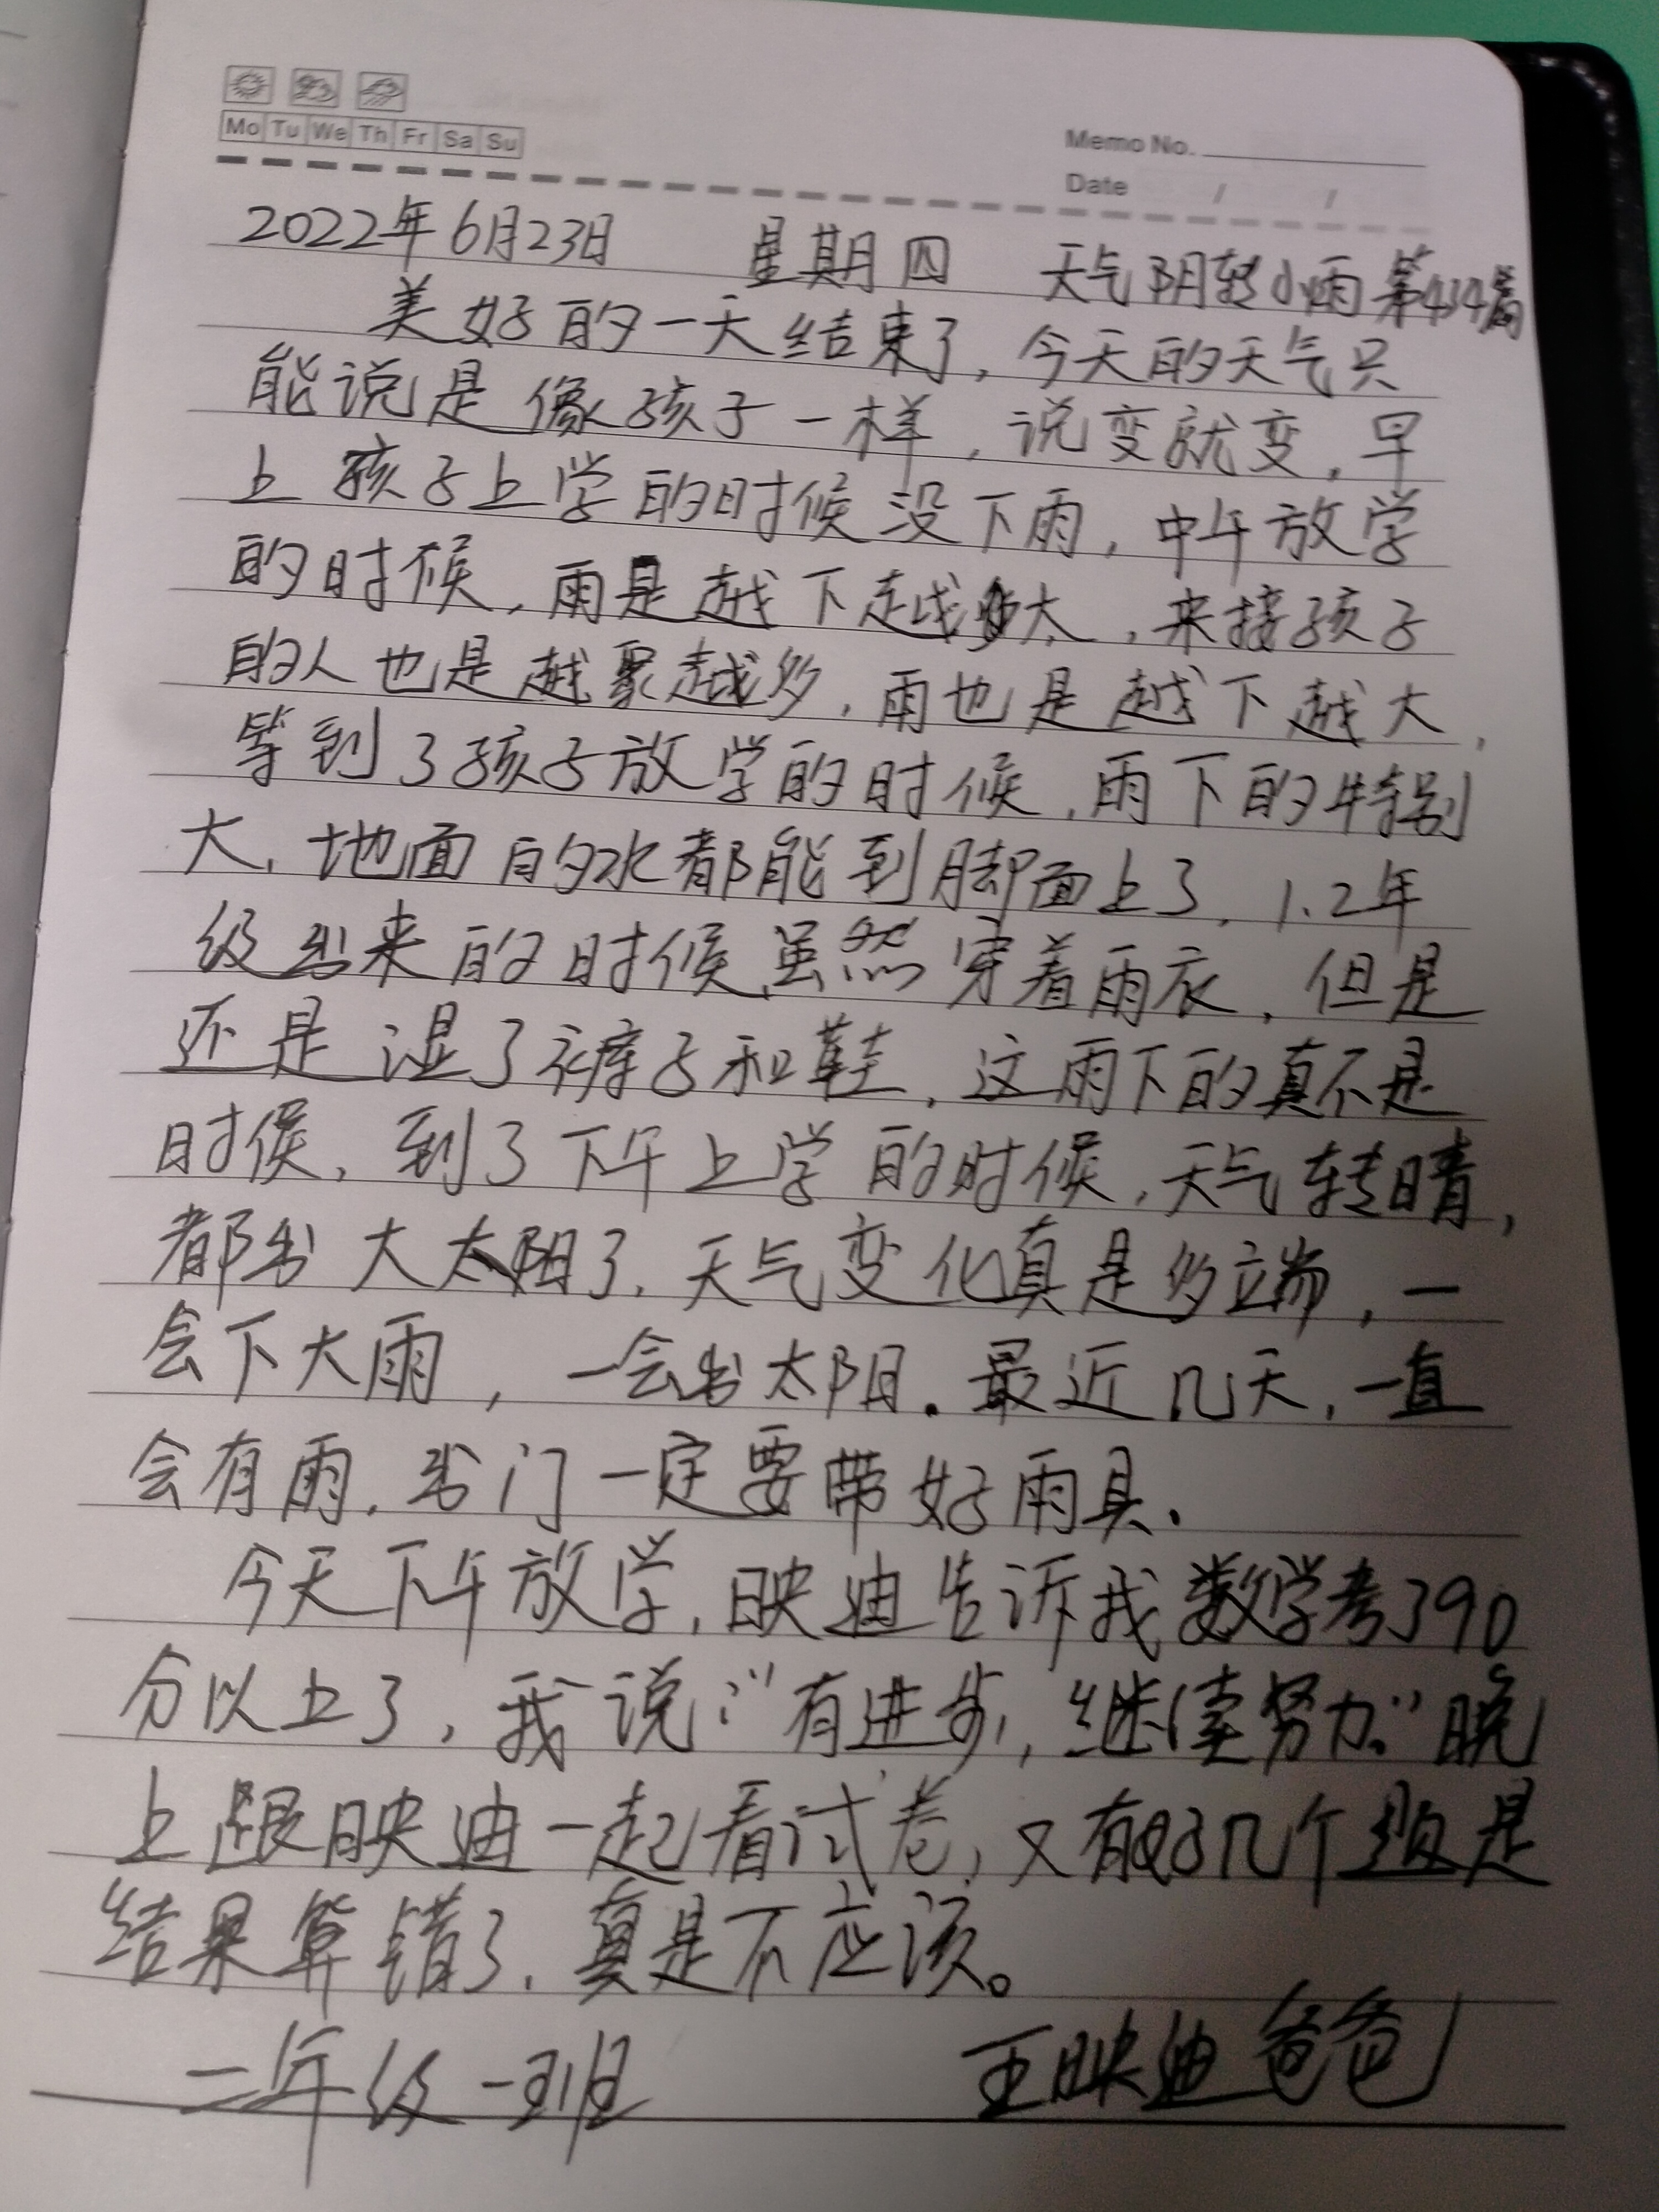 Mo Tu We Th Fr Sa Su
Memo No.
Date / /
2022年6月23日 星期四 天气阴转小雨 第434篇
美好的一天结束了，今天的天气只
能说是像孩子一样，说变就变，早
上孩子上学的时候没下雨，中午放学
的时候，雨是越下越大，来接孩子
的人也是越聚越多，雨也是越下越大，
等到了孩子放学的时候，雨下的特别
大，地面的水都能到脚面上了，1.2年
级出来的时候虽然穿着雨衣，但是
还是湿了裤子和鞋，这雨下的真不是
时候，到了下午上学的时候，天气转晴，
都出大太阳了，天气变化真是多端，一
会下大雨，一会出太阳。最近几天，一直
会有雨，出门一定要带好雨具.
今天下午放学，映迪告诉我数学考了90
分以上了，我说：“有进步，继续努力。”晚
上跟映迪一起看试卷，又有好几个题是
结果算错了，真是不应该。
二年级一班 王映迪爸爸